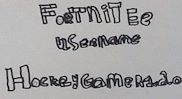 FORTNITEe
username
Hockeygamer1210